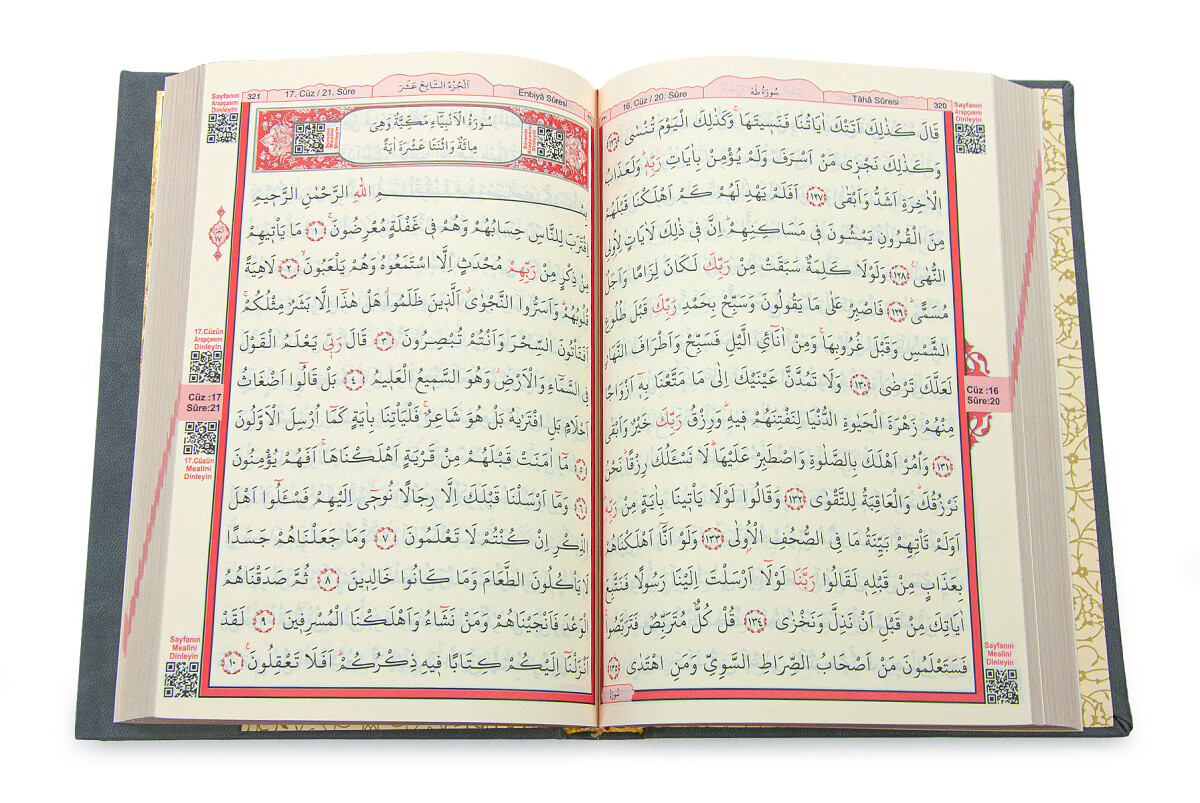 Tâhâ Sûresi 320
سُورَةُ طٰهٰ
16. Cüz / 20. Sûre
Sayfanın
Arapçasını
Dinleyin
قَالَ كَذٰلِكَ اَتَتْكَ اٰيَاتُنَا فَنَس۪يتَهَاۚ وَكَذٰلِكَ الْيَوْمَ تُنْسٰى ﴿١٢٦﴾
وَكَذٰلِكَ نَجْز۪ي مَنْ اَسْرَفَ وَلَمْ يُؤْمِنْ بِاٰيَاتِ رَبِّه۪ۜ وَلَعَذَابُ
الْاٰخِرَةِ اَشَدُّ وَاَبْقٰى ﴿١٢٧﴾ اَفَلَمْ يَهْدِ لَهُمْ كَمْ اَهْلَكْنَا قَبْلَهُمْ
مِنَ الْقُرُونِ يَمْشُونَ ف۪ي مَسَاكِنِهِمْۜ اِنَّ ف۪ي ذٰلِكَ لَاٰيَاتٍ لِاُو۬لِي
النُّهٰى۟ ﴿١٢٨﴾ وَلَوْلَا كَلِمَةٌ سَبَقَتْ مِنْ رَبِّكَ لَكَانَ لِزَامًا وَاَجَلٌ
مُسَمًّىۜ ﴿١٢٩﴾ فَاصْبِرْ عَلٰى مَا يَقُولُونَ وَسَبِّحْ بِحَمْدِ رَبِّكَ قَبْلَ طُلُوعِ
الشَّمْسِ وَقَبْلَ غُرُوبِهَاۚ وَمِنْ اٰنَٓائِ الَّيْلِ فَسَبِّحْ وَاَطْرَافَ النَّهَارِ
لَعَلَّكَ تَرْضٰى ﴿١٣٠﴾ وَلَا تَمُدَّنَّ عَيْنَيْكَ اِلٰى مَا مَتَّعْنَا بِه۪ٓ اَزْوَاجًا
مِنْهُمْ زَهْرَةَ الْحَيٰوةِ الدُّنْيَا لِنَفْتِنَهُمْ ف۪يهِۜ وَرِزْقُ رَبِّكَ خَيْرٌ وَاَبْقٰى
﴿١٣١﴾ وَأْمُرْ اَهْلَكَ بِالصَّلٰوةِ وَاصْطَبِرْ عَلَيْهَاۜ لَا نَسْـَٔلُكَ رِزْقًاۜ نَحْنُ
نَرْزُقُكَۜ وَالْعَاقِبَةُ لِلتَّقْوٰى ﴿١٣٢﴾ وَقَالُوا لَوْلَا يَأْت۪ينَا بِاٰيَةٍ مِنْ رَبِّه۪ۜ
اَوَلَمْ تَأْتِهِمْ بَيِّنَةُ مَا فِي الصُّحُفِ الْاُو۫لٰى ﴿١٣٣﴾ وَلَوْ اَنَّٓا اَهْلَكْنَاهُمْ
بِعَذَابٍ مِنْ قَبْلِه۪ لَقَالُوا رَبَّنَا لَوْلَٓا اَرْسَلْتَ اِلَيْنَا رَسُولًا فَنَتَّبِعَ
اٰيَاتِكَ مِنْ قَبْلِ اَنْ نَذِلَّ وَنَخْزٰى ﴿١٣٤﴾ قُلْ كُلٌّ مُتَرَبِّصٌ فَتَرَبَّصُواۚ
فَسَتَعْلَمُونَ مَنْ اَصْحَابُ الصِّرَاطِ السَّوِيِّ وَمَنِ اهْتَدٰى ﴿١٣٥﴾
سُورَةُ
Cüz :16
Sûre:20
Sayfanın
Mealini
Dinleyin
Enbiyâ Sûresi
اَلْجُزْءُ السَّابِعَ عَشَرَ
17. Cüz / 21. Sûre
321
Sayfanın
Arapçasını
Dinleyin
سُورَةُ الْاَنْبِيَٓاءِ مَكِّيَّةٌ وَهِيَ
مِائَةٌ وَاثْنَتَا عَشْرَةَ اٰيَةً
بِسْمِ اللّٰهِ الرَّحْمٰنِ الرَّح۪يمِ
اِقْتَرَبَ لِلنَّاسِ حِسَابُهُمْ وَهُمْ ف۪ي غَفْلَةٍ مُعْرِضُونَۚ ﴿١﴾ مَا يَأْت۪يهِمْ
مِنْ ذِكْرٍ مِنْ رَبِّهِمْ مُحْدَثٍ اِلَّا اسْتَمَعُوهُ وَهُمْ يَلْعَبُونَۙ ﴿٢﴾ لَاهِيَةً
قُلُوبُهُمْۜ وَاَسَرُّوا النَّجْوٰىۗ اَلَّذ۪ينَ ظَلَمُواۗ هَلْ هٰذَٓا اِلَّا بَشَرٌ مِثْلُكُمْۚ
اَفَتَأْتُونَ السِّحْرَ وَاَنْتُمْ تُبْصِرُونَ ﴿٣﴾ قَالَ رَبّ۪ي يَعْلَمُ الْقَوْلَ
فِي السَّمَٓاءِ وَالْاَرْضِۘ وَهُوَ السَّم۪يعُ الْعَل۪يمُ ﴿٤﴾ بَلْ قَالُٓوا اَضْغَاثُ
اَحْلَامٍ بَلِ افْتَرٰيهُ بَلْ هُوَ شَاعِرٌۚ فَلْيَأْتِنَا بِاٰيَةٍ كَمَٓا اُرْسِلَ الْاَوَّلُونَ
﴿٥﴾ مَٓا اٰمَنَتْ قَبْلَهُمْ مِنْ قَرْيَةٍ اَهْلَكْنَاهَاۚ اَفَهُمْ يُؤْمِنُونَ
﴿٦﴾ وَمَٓا اَرْسَلْنَا قَبْلَكَ اِلَّا رِجَالًا نُوح۪ٓي اِلَيْهِمْ فَسْـَٔلُٓوا اَهْلَ
الذِّكْرِ اِنْ كُنْتُمْ لَا تَعْلَمُونَ ﴿٧﴾ وَمَا جَعَلْنَاهُمْ جَسَدًا
لَا يَأْكُلُونَ الطَّعَامَ وَمَا كَانُوا خَالِد۪ينَ ﴿٨﴾ ثُمَّ صَدَقْنَاهُمُ
الْوَعْدَ فَاَنْجَيْنَاهُمْ وَمَنْ نَشَٓاءُ وَاَهْلَكْنَا الْمُسْرِف۪ينَ ﴿٩﴾ لَقَدْ
اَنْزَلْنَٓا اِلَيْكُمْ كِتَابًا ف۪يهِ ذِكْرُكُمْۜ اَفَلَا تَعْقِلُونَ۟ ﴿١٠﴾
17.Cüzün
Arapçasını
Dinleyin
Cüz :17
Sûre:21
17.Cüzün
Mealini
Dinleyin
Sayfanın
Mealini
Dinleyin